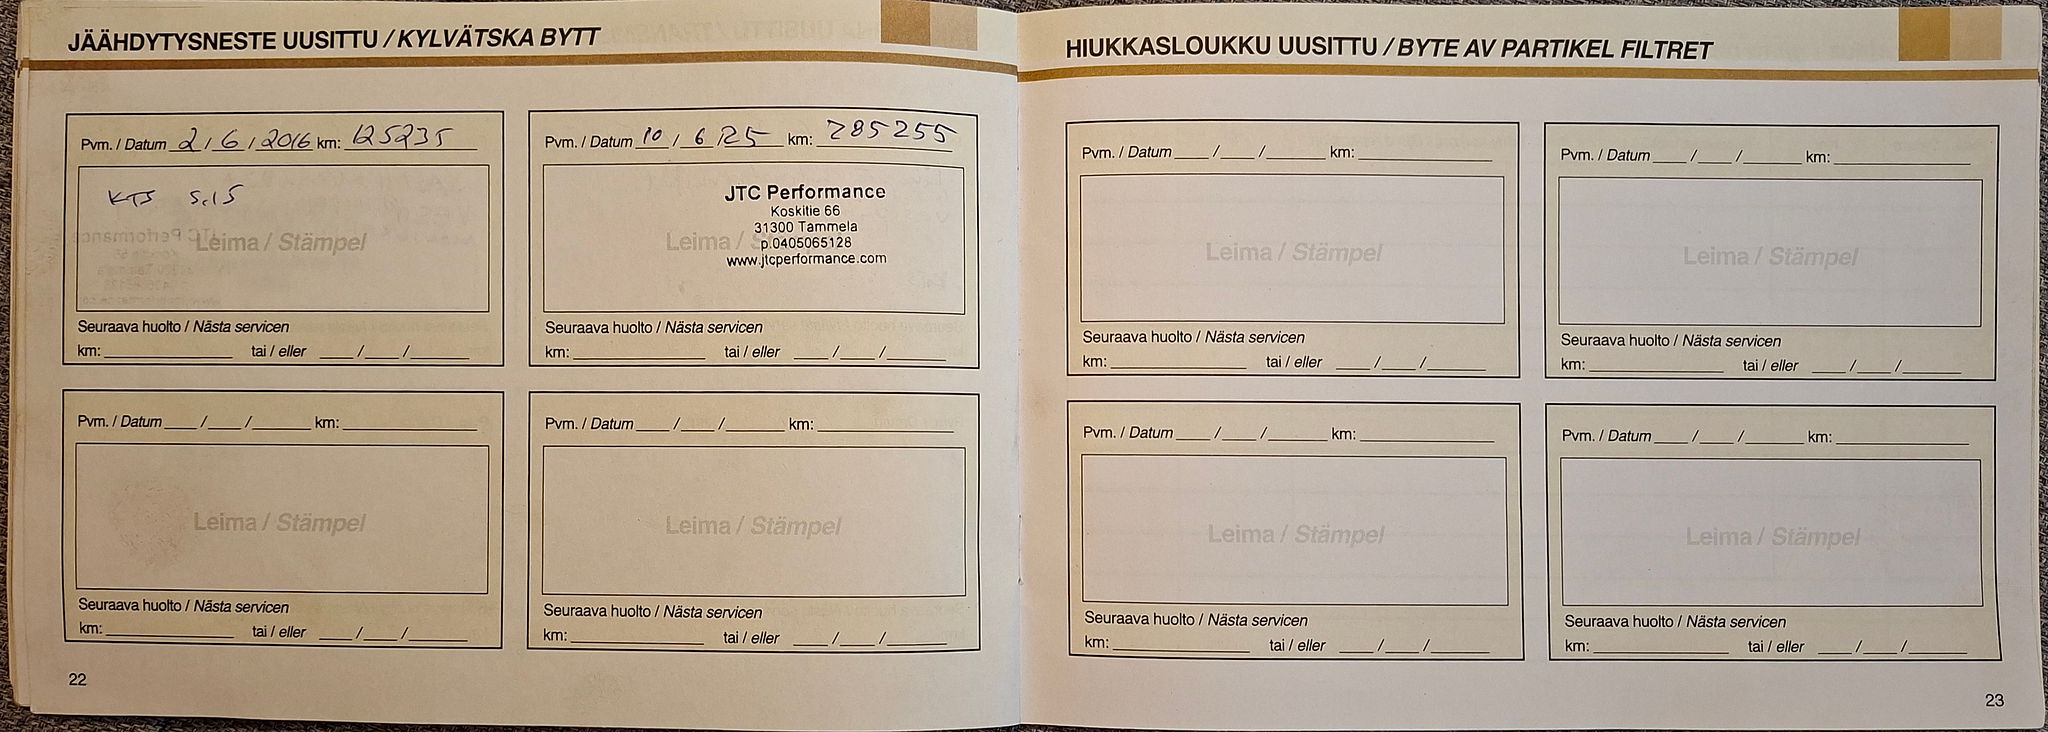 JÄÄHDYTYSNESTE UUSITTU / KYLVÄTSKA BYTT
Pvm. / Datum 2 / 6 / 2016 km: 125235
KTS S.15
Leima / Stämpel
Seuraava huolto / Nästa servicen
km: ____ tai / eller ___/___/____
Pvm. / Datum 10 / 6 / 25 km: 285255
JTC Performance
Koskitie 66
31300 Tammela
p.0405065128
www.jtcperformance.com
Leima / Stämpel
Seuraava huolto / Nästa servicen
km: ____ tai / eller ___/___/____
Pvm. / Datum ___/___/____ km: ____
Leima / Stämpel
Seuraava huolto / Nästa servicen
km: ____ tai / eller ___/___/____
Pvm. / Datum ___/___/____ km: ____
Leima / Stämpel
Seuraava huolto / Nästa servicen
km: ____ tai / eller ___/___/____
22
HIUKKASLOUKKU UUSITTU / BYTE AV PARTIKEL FILTRET
Pvm. / Datum ___/___/____ km: ____
Leima / Stämpel
Seuraava huolto / Nästa servicen
km: ____ tai / eller ___/___/____
Pvm. / Datum ___/___/____ km: ____
Leima / Stämpel
Seuraava huolto / Nästa servicen
km: ____ tai / eller ___/___/____
Pvm. / Datum ___/___/____ km: ____
Leima / Stämpel
Seuraava huolto / Nästa servicen
km: ____ tai / eller ___/___/____
Pvm. / Datum ___/___/____ km: ____
Leima / Stämpel
Seuraava huolto / Nästa servicen
km: ____ tai / eller ___/___/____
23